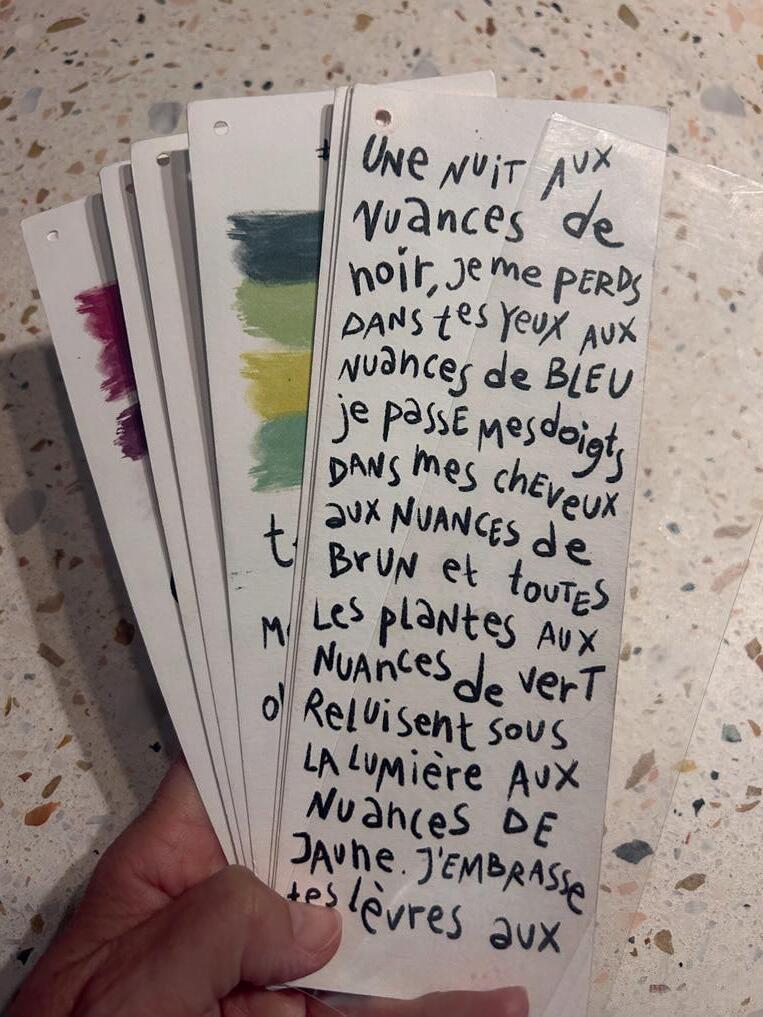 UNe NuiT AUX
NUaNces de
noir, je me PERDS
DANS tes Yeux AUX
NUaNces de BLEU
je PaSSE Mes doigts
DANS mes cheveux
aux NUANCES de
BrUN et toUTES
Les plaNtes AUX
NUANCes de verT
ReLUisent sous
LA LUMière AUX
NUaNces DE
JAUne. J'EMBRASSe
tes lèvres aux